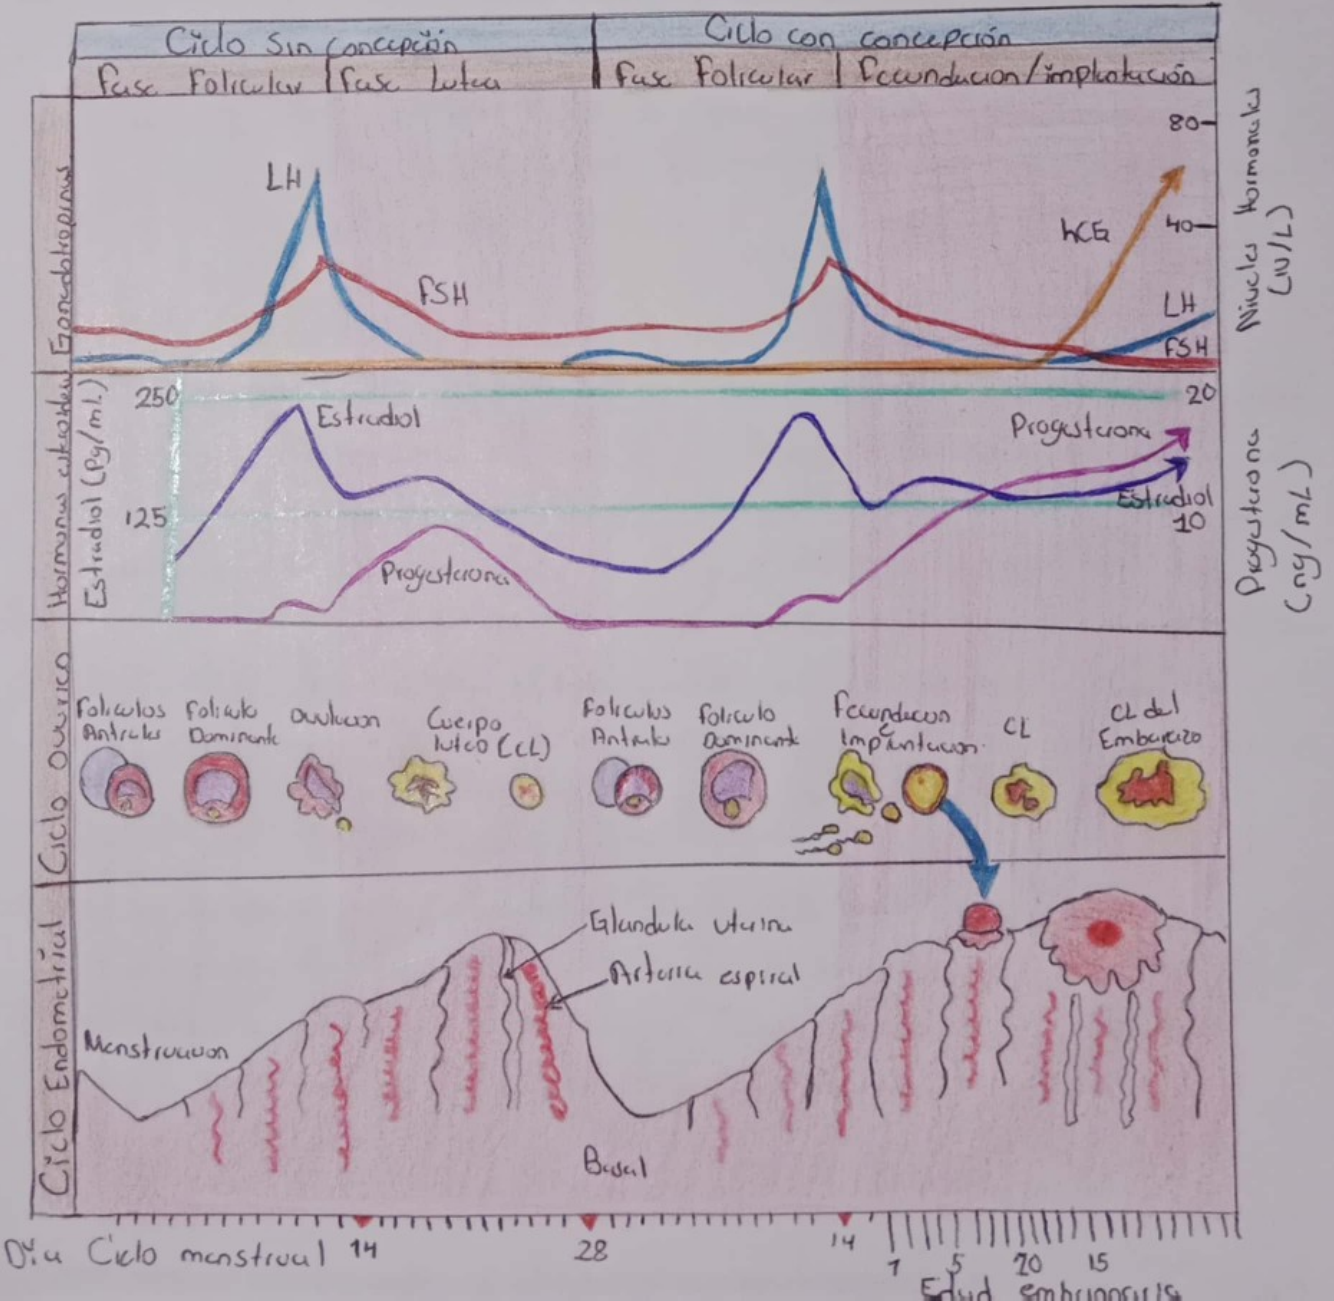 Ciclo Sin Concepción
Ciclo con concepción
Fase Folicular
Fase Lutea
Fase Folicular
Fecundacion/implantación
Gonadotropinas
LH
FSH
hCG
LH
FSH
80
40
Niveles Hormonales
(IU/L)
Estradiol (Pg/mL)
250
125
Estradiol
Progesterona
Progesterona
Estradiol
20
10
Progesterona
(ng/mL)
Ciclo Ovarico
Foliculos
Antrales
Foliculo
Dominante
Ovulacion
Cuerpo
luteo (CL)
Foliculos
Antrales
Foliculo
Dominante
Fecundacion
e
Implantacion
CL
CL del
Embarazo
Ciclo Endometrial
Menstruacion
Glandula uterina
Arteria espiral
Basal
Día Ciclo menstrual
14
28
14
1
5
15
Edad